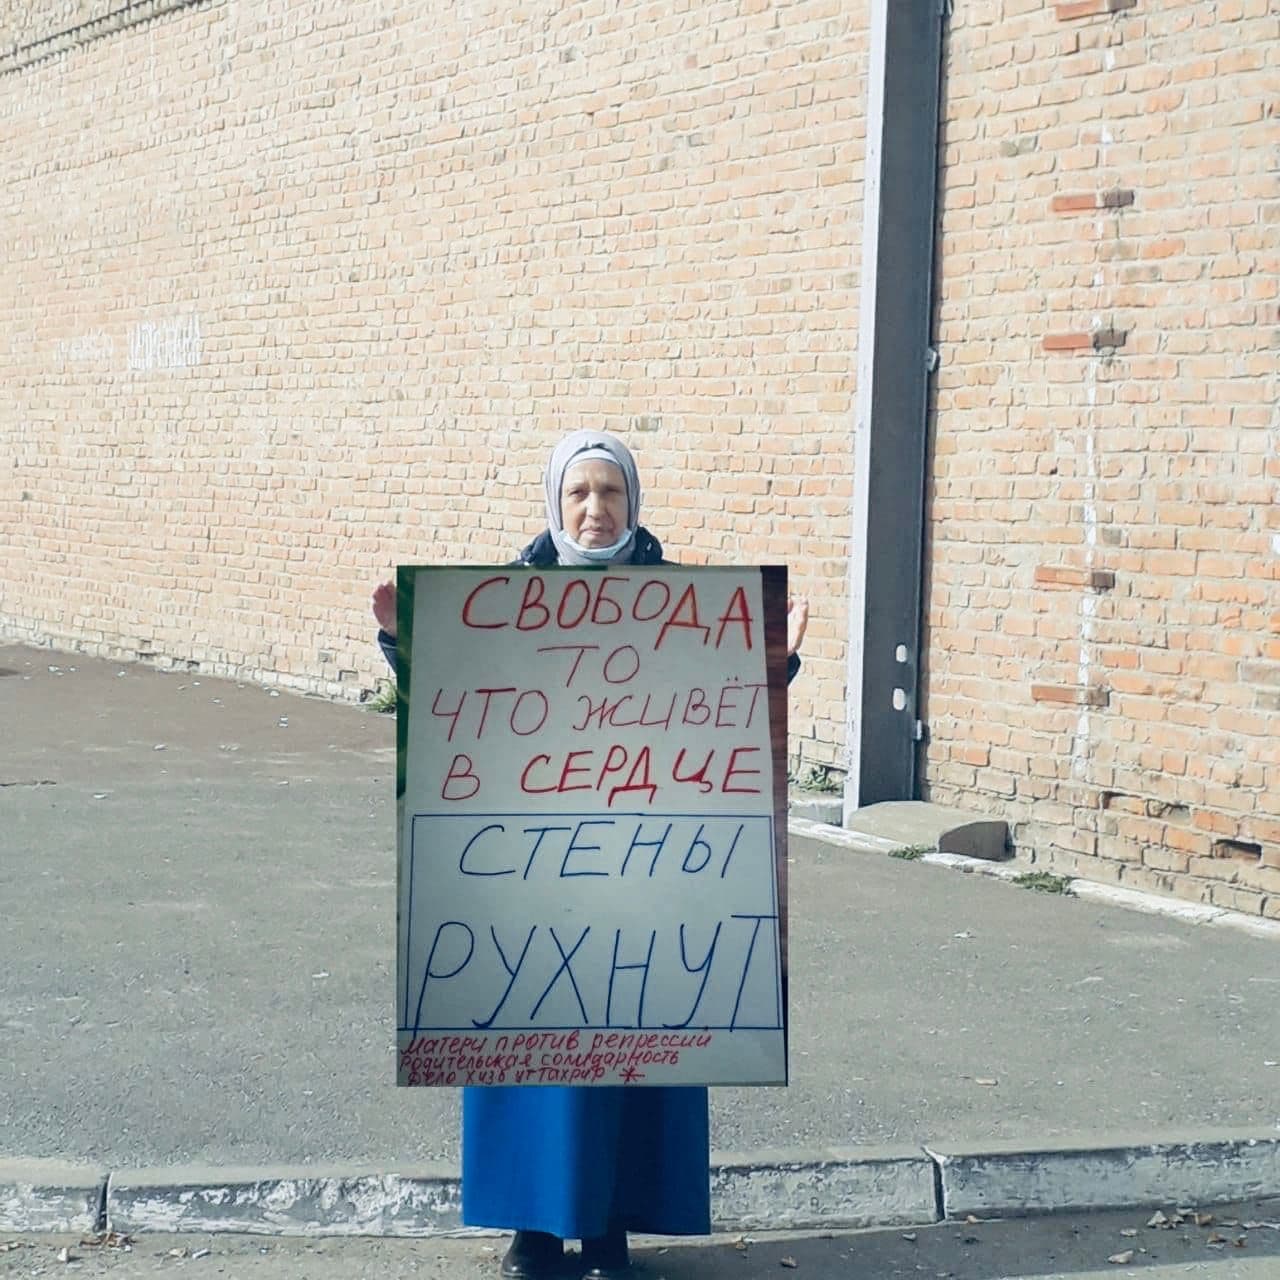 СВОБОДА
ТО
ЧТО ЖИВЁТ
В СЕРДЦЕ
СТЕНЫ
РУХНУТ
Матери против репрессий
родительская солидарность
дело Хизб ут Тахрир *